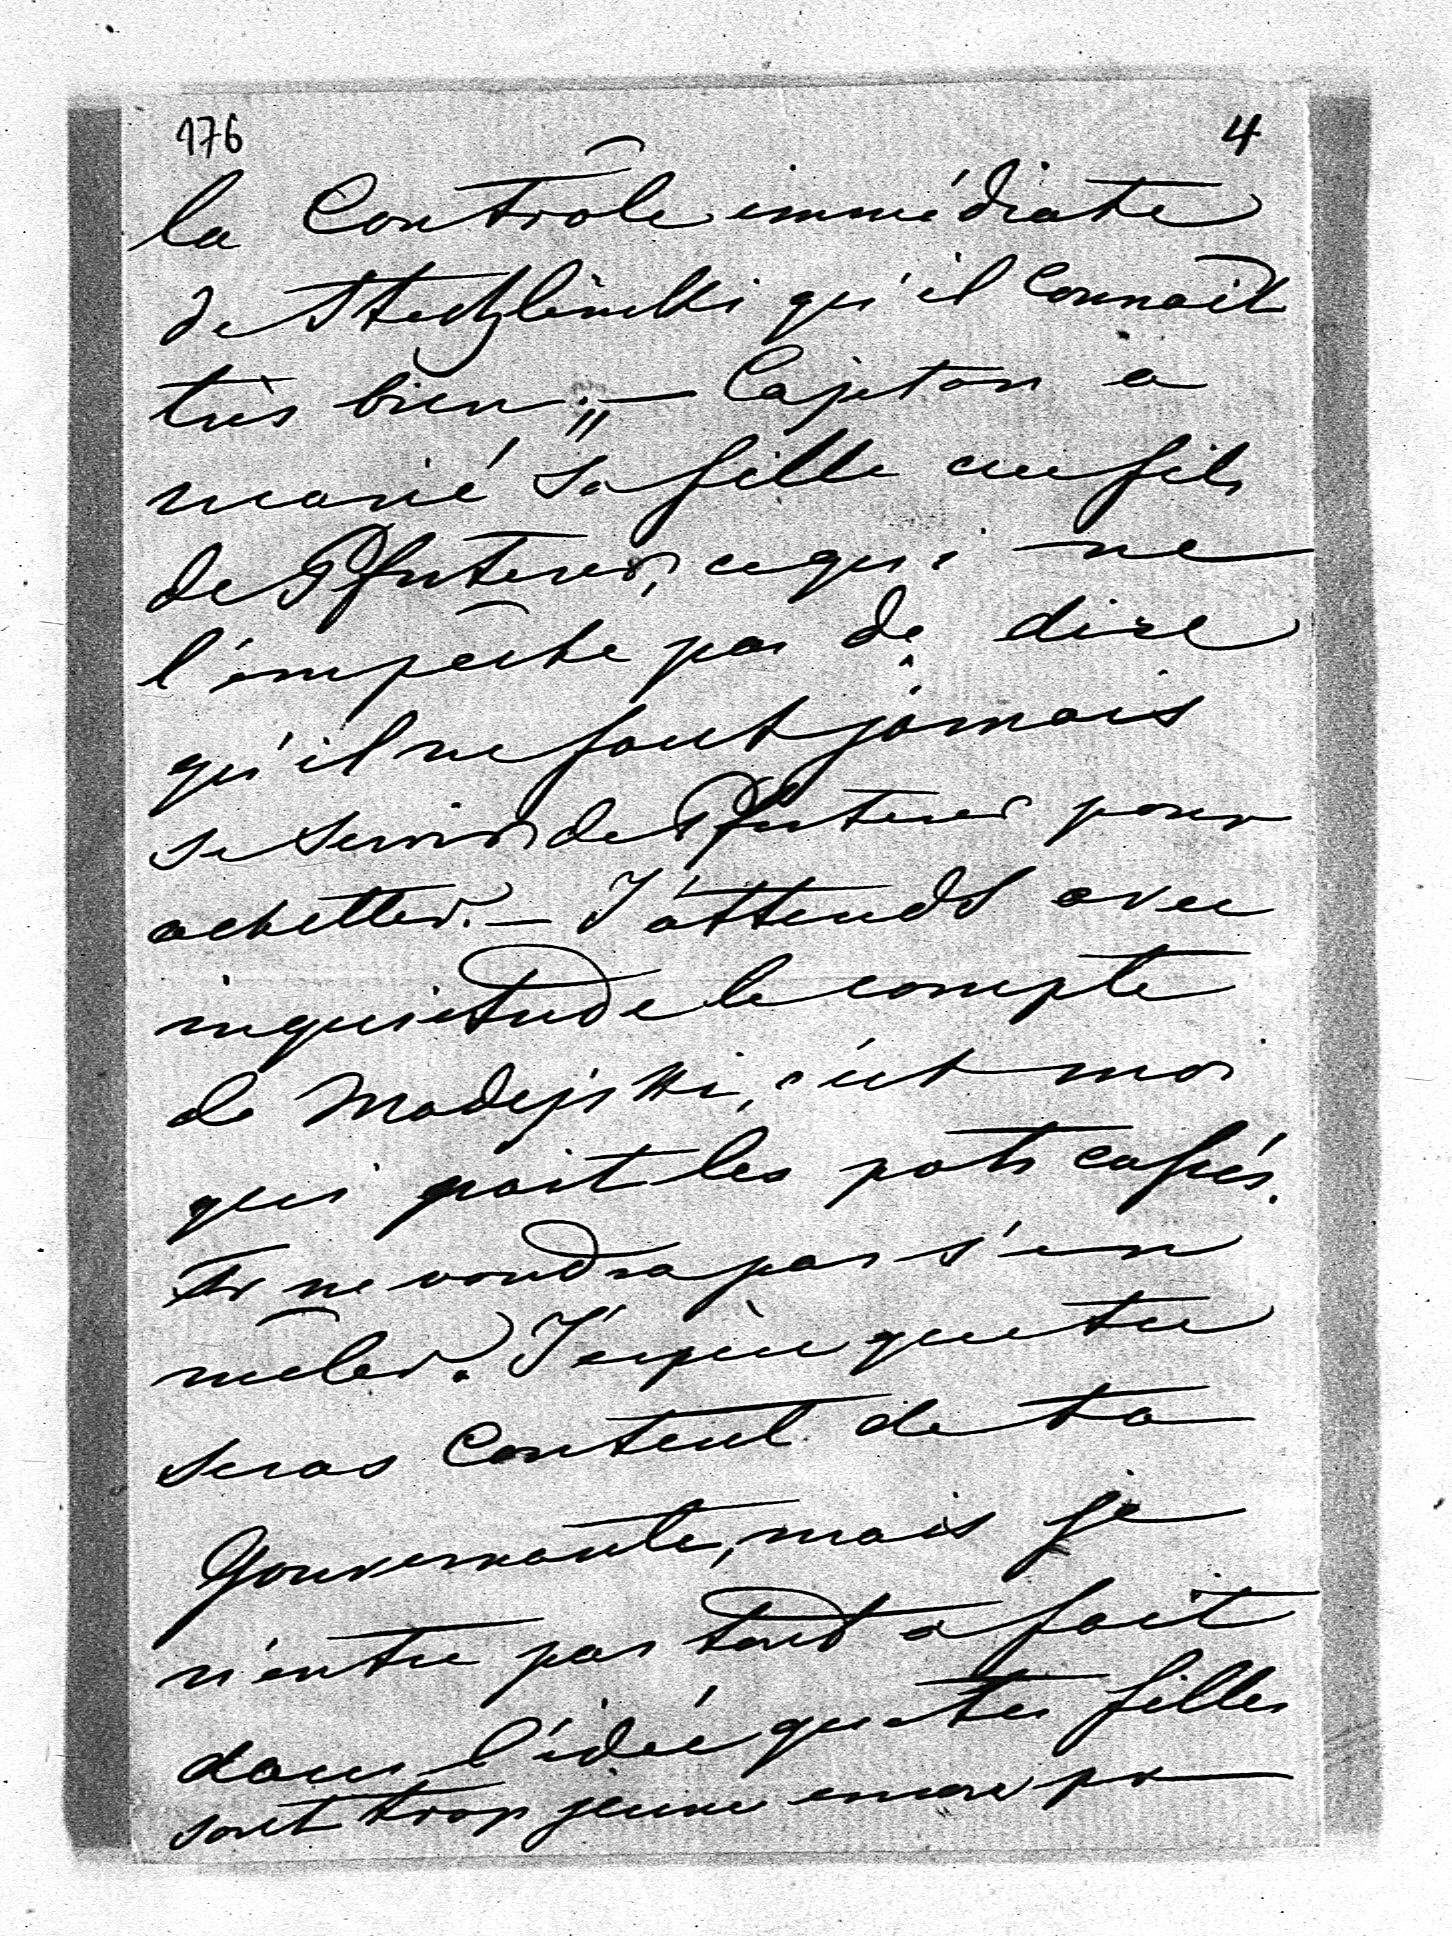 176 4
la Contrôle immédiate
de qu'il Connaît
très bien „— Cajetan a
marié sa fille au fils
de ce qui ne
l'empêche pas de dire
qu'il ne faut jamais
se servir de pour
achetter. — J'attends avec
inquietude le compte
de Madejski, c'est moi
qui pait les pots cassés.
ne voudra pas s'en
mêler. J'espère que tu
seras Content de ta
Gouvernante, mais je
n'entre pas tout a fait
dans l'idée que tes filles
sont trop jeune encore pr